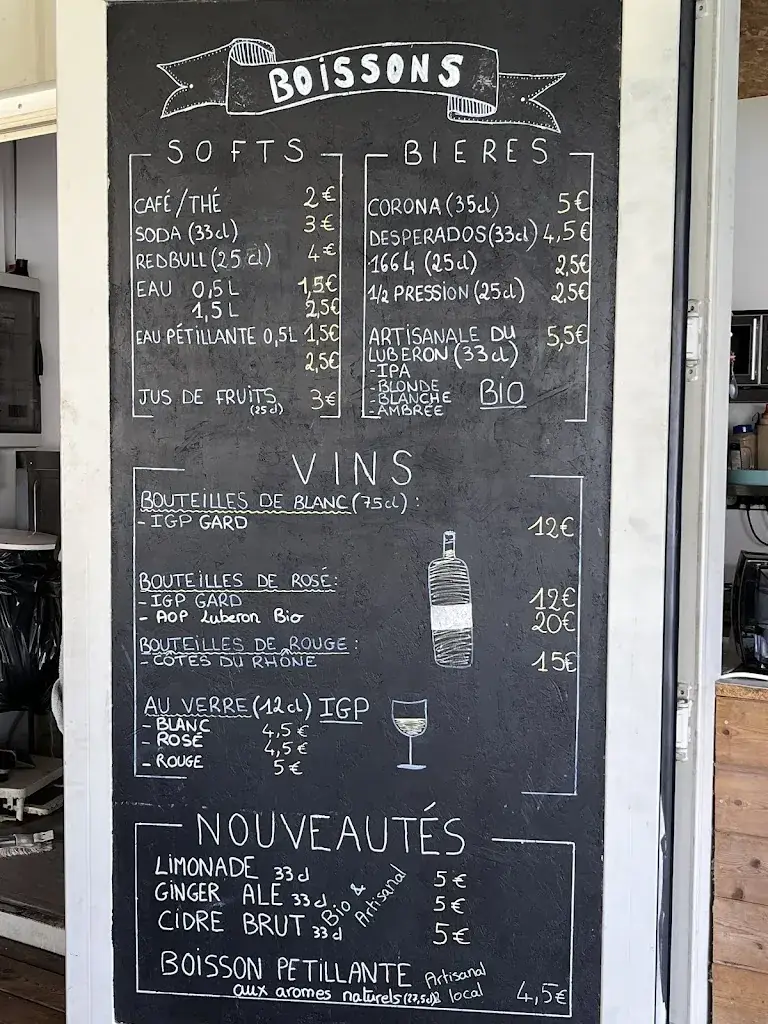 BOISSONS
SOFTS
CAFÉ/THÉ 2€
SODA (33cl) 3€
REDBULL (25cl) 4€
EAU 0,5L 1,5€
1,5L 2,5€
EAU PÉTILLANTE 0,5L 1,5€
2,5€
JUS DE FRUITS 3€
(25cl)
BIERES
CORONA (35cl) 5€
DESPERADOS (33cl) 4,5€
1664 (25cl) 2,5€
1/2 PRESSION (25cl) 2,5€
ARTISANALE DU 5,5€
LUBERON (33cl)
- IPA
- BLONDE BIO
- BLANCHE
- AMBRÉE
VINS
BOUTEILLES DE BLANC (75cl) :
- IGP GARD 12€
BOUTEILLES DE ROSÉ:
- IGP GARD 12€
- AOP Luberon Bio 20€
BOUTEILLES DE ROUGE :
- CÔTES DU RHÔNE 15€
AU VERRE (12cl) IGP
- BLANC 4,5€
- ROSÉ 4,5€
- ROUGE 5€
NOUVEAUTÉS
LIMONADE 33cl 5€
GINGER ALE 33cl 5€
CIDRE BRUT 33cl 5€
Bio &
Artisanal
BOISSON PETILLANTE Artisanal
aux aromes naturels (27,5cl) & local 4,5€